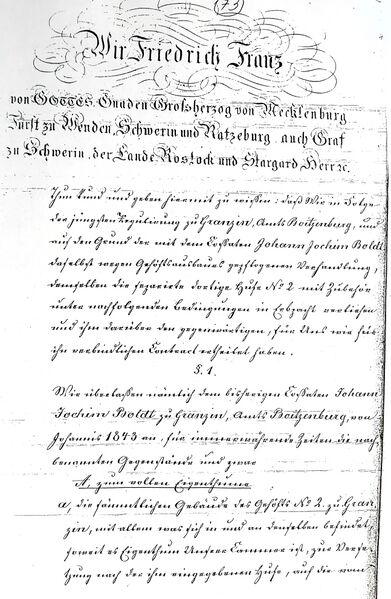 (73)
Wir Friedrich Franz
von GOTTES Gnaden Großherzog von Mecklenburg
Fürst zu Wenden, Schwerin und Ratzeburg, auch Graf
zu Schwerin, der Lande Rostock und Stargard Herr ꝛc.
Thun kund und geben hiermit zu wissen: daß Wir in Folge
der jüngsten Regulirung zu Granzin, Amts Boitzenburg, und
auf den Grund der mit dem Cossaten Johann Jochim Boldt
daselbst wegen Gehöftsausbaues gepflogenen Verhandlung,
demselben die separirte dortige Hufe No 2 mit Zubehör
unter nachfolgenden Bedingungen in Erbpacht verliehen
und ihm darüber den gegenwärtigen, für Uns wie für
ihn verbindlichen Contract ertheilet haben.
§. 1.
Wir überlassen nämlich dem bisherigen Cossaten Johann
Jochim Boldt zu Granzin, Amts Boitzenburg, von
Johannis 1843 an, für immerwährende Zeiten die nach-
benannten Gegenstände und zwar
A, zum vollen Eigenthume
a, die sämmtlichen Gebäude des Gehöfts No 2. zu Gran-
zin, mit allem was sich in und an denselben befindet,
soweit es Eigenthum Unserer Cammer ist, zur Verse-
tzung nach der ihm eingegebenen Hufe, auf die